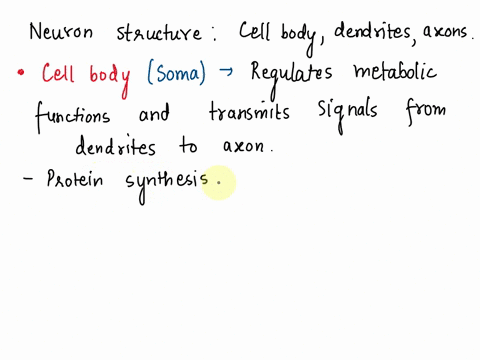 Neuron structure : Cell body, dendrites, axons.
• Cell body (Soma) → Regulates metabolic
functions and transmits signals from
dendrites to axon.
- Protein synthesis.